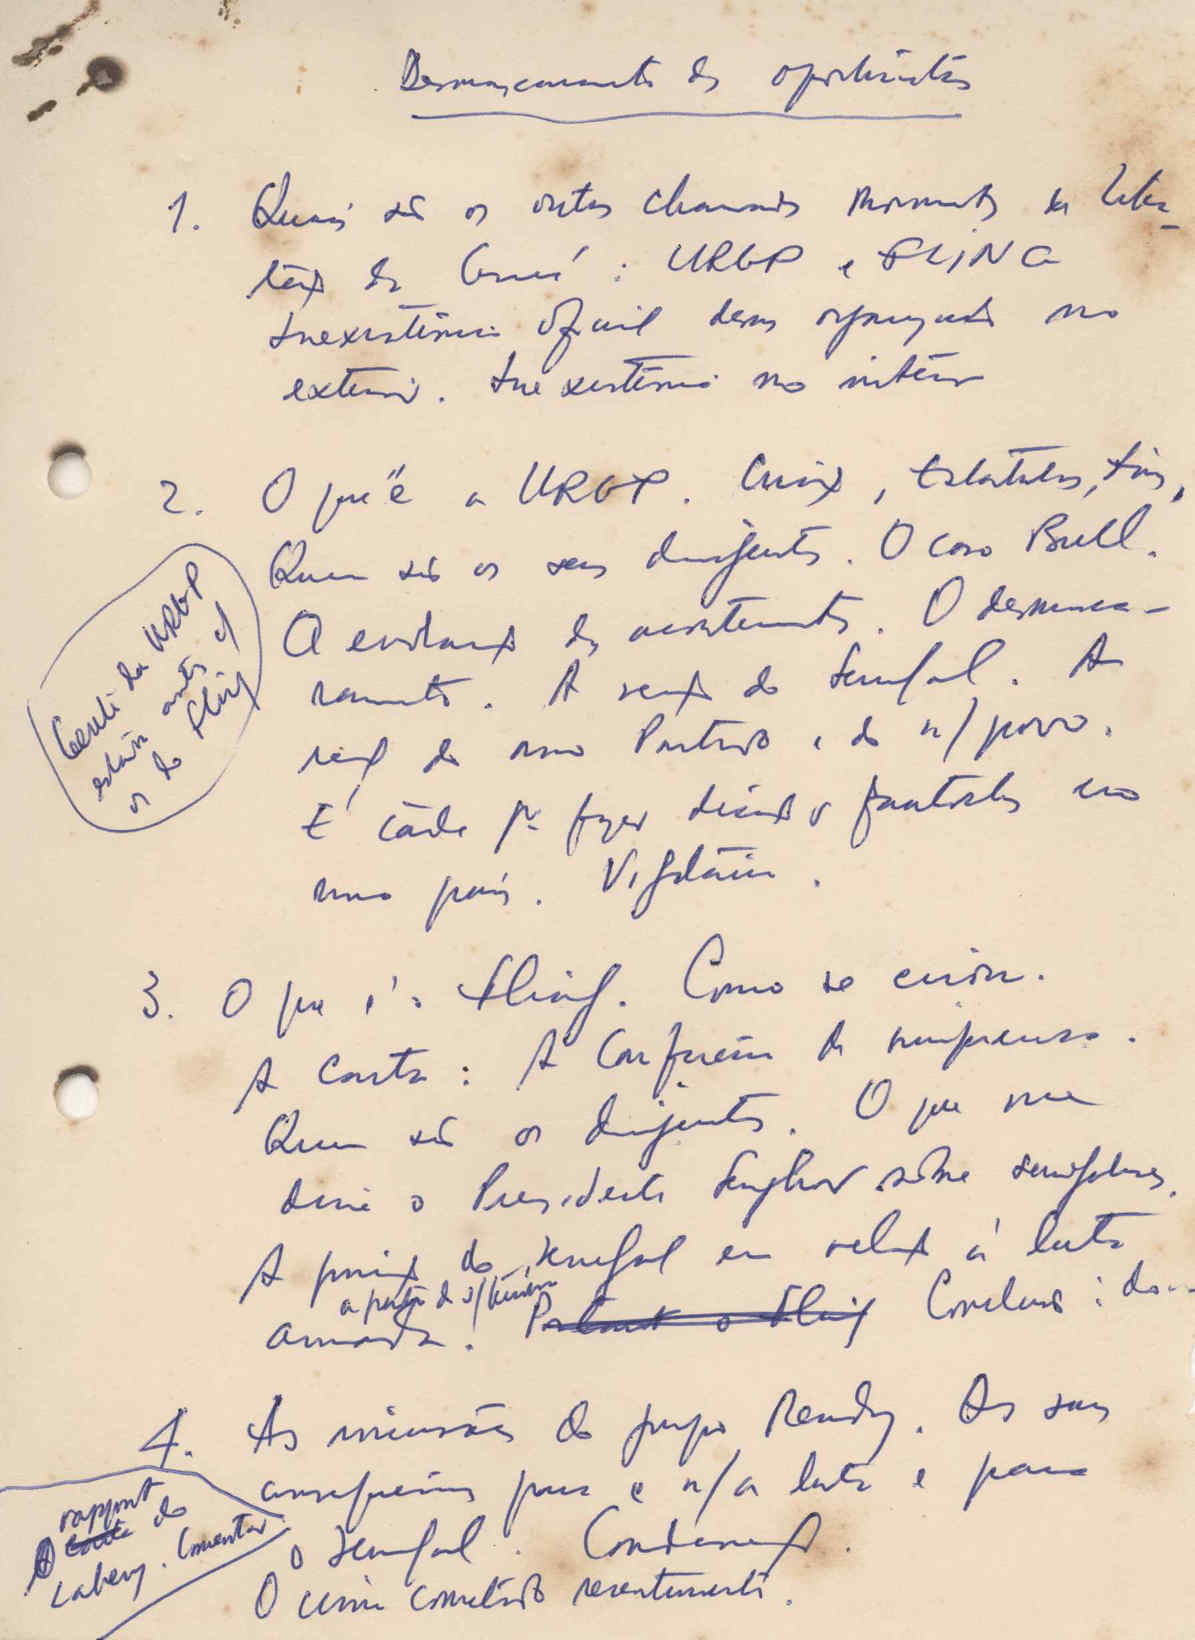 Desmascaramento dos oportunistas
1. Quais são os outros chamados movimentos de liber-
tação da Guiné: URGP e FLING
Inexistência oficial dessas organizações no
exterior. Inexistência no interior
2. O que é a URGP. Criação, Estatutos, fins,
Quem são os seus dirigentes. O caso Bull.
A evolução dos acontecimentos. O desmasca-
ramento. A reacção do Senegal. A
reacção do nosso Partido e do n/povo.
É tarde para fazer discursos fantoches no
nosso país. Vigilância.
Gente da URGP
estão antes
os do Fling
3. O que é a Fling. Como se criou.
A Carta: A Conferência de imprensa.
Quem são os dirigentes. O que me
disse o Presidente Senghor sobre senegaleses.
A posição do Senegal em relação à luta
a partir do s/ território
armada. Conclusão:
4. As incursões do grupo Rendy. As suas
consequências para a n/a luta e para
o Senegal. Condenação.
O crime cometido recentemente.
rapport
do
Labery. Comentar